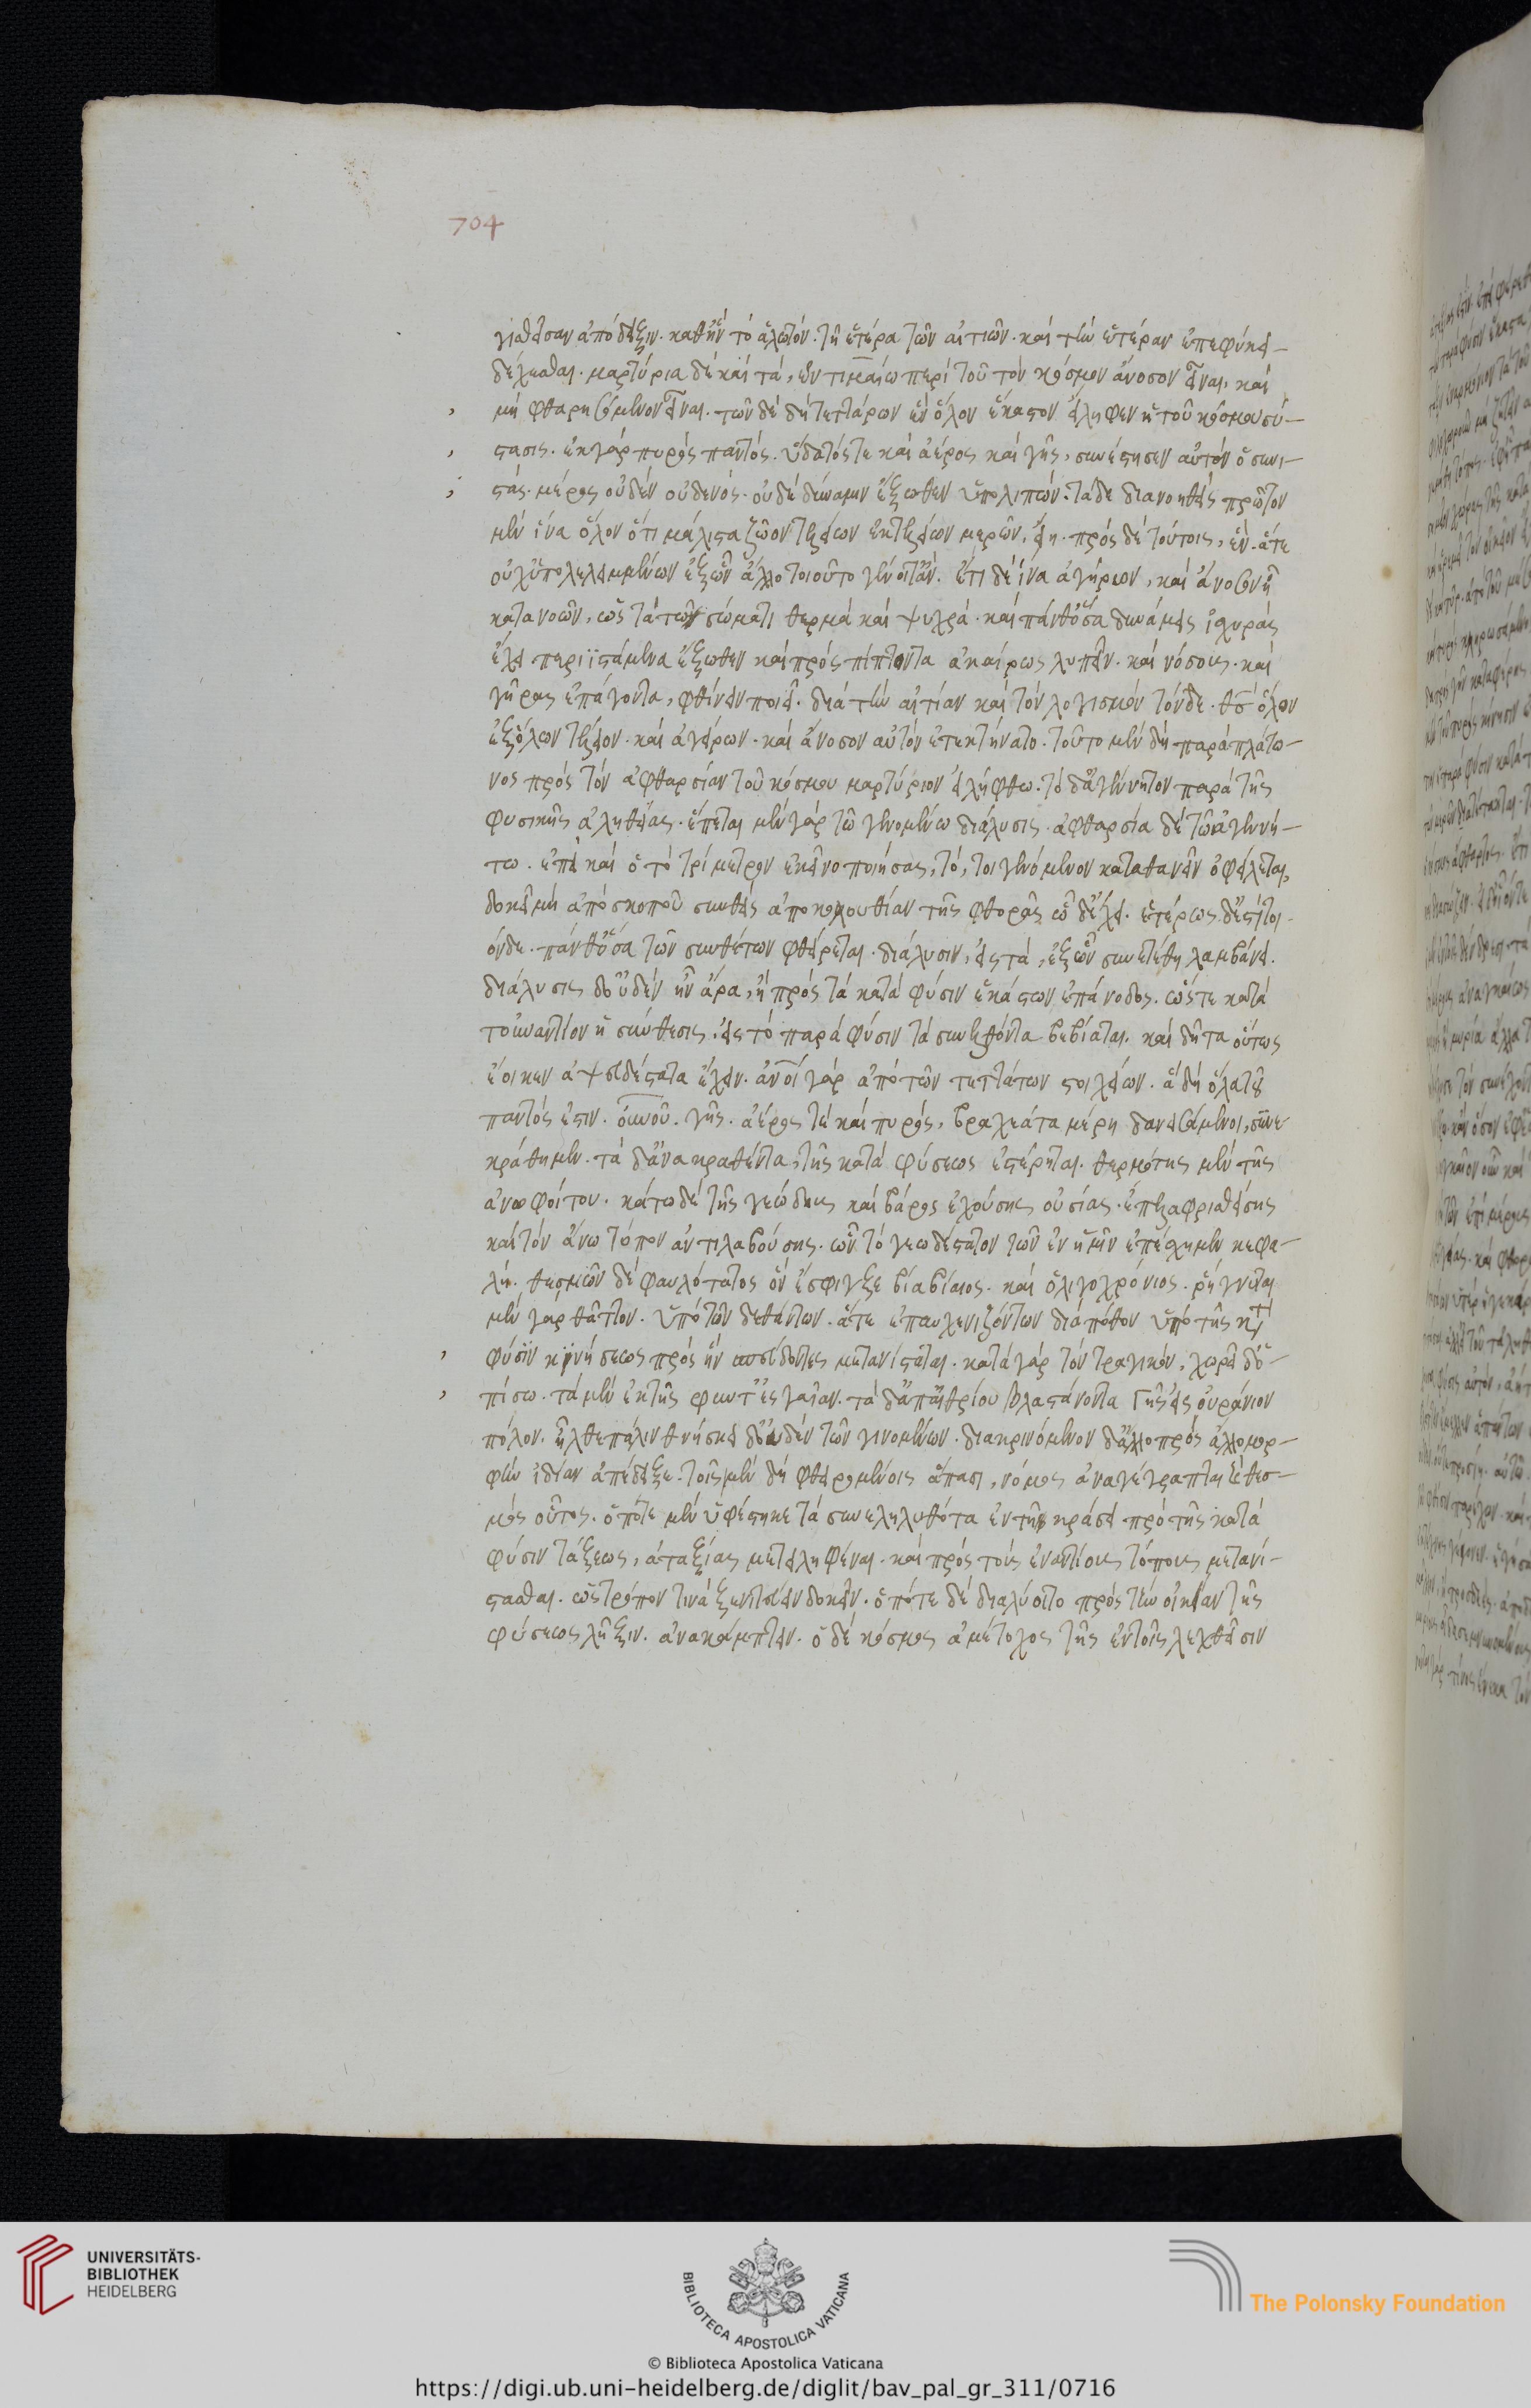 704
γιαθεῖσαν ἀπόδειξιν. καθ' ἣν τὸ ἁλωτὸν. τῆ ἑτέρα τῶν αἰτιῶν. καὶ τὴν ἑτέραν ἐπεφύκει-
δέχεσθαι. μαρτύρια δὲ καὶ τὰ, ἐν τιμαίω περὶ τοῦ τὸν κόσμον ἄνοσον εἶναι, καὶ
μὴ φθαρησόμενον εἶναι. τῶν δὲ δὴ τεττάρων ἓν ὅλον ἕκαστον εἴληφεν ἡ τοῦ κόσμου σύ-
στασις. ἐκ γὰρ πυρὸς παντὸς. ὕδατός τε καὶ ἀέρος καὶ γῆς, συνέστησεν αὐτὸν ὁ συνι-
στὰς. μέρος οὐδὲν οὐδενὸς. οὐδὲ δύναμιν ἔξωθεν ὑπολιπών. τάδε διανοηθεὶς πρῶτον
μὲν ἵνα ὅλον ὅτι μάλιστα ζῶον τελείων ἐκ τελείων μερῶν, εἴη. πρὸς δὲ τούτοις, ἓν. ἅτε
οὐχ ὑπολελειμμένων ἐξ ὧν ἄλλο τοιοῦτο γένοιτ' ἄν. ἔτι δὲ ἵνα ἀγήρων, καὶ ἄνοσον ἦ
κατανοῶν, ὡς τὰ τῶν σώματι θερμὰ καὶ ψυχρὰ. καὶ πάνθ' ὅσα δυνάμεις ἰσχυρὰς
ἔχει περιϊστάμενα ἔξωθεν καὶ πρὸς πίπτοντα ἀκαίρως λυπεῖν. καὶ νόσους. καὶ
γῆρας ἐπάγοντα, φθίνειν ποιεῖ. διὰ τὴν αἰτίαν καὶ τὸν λογισμὸν τόνδε. θσ ὅλον
ἐξ ὅλων τέλειον. καὶ ἀγήρων. καὶ ἄνοσον αὐτὸν ἐτεκτήνατο. τοῦτο μὲν δὴ παρὰ πλάτω-
νος πρὸς τὸν ἀφθαρσίαν τοῦ κόσμου μαρτύριον εἰλήφθω. τὸ δ' ἀγένητον παρὰ τῆς
φυσικῆς ἀληθείας. ἕπεται μὲν γὰρ τῶ γενομένω διάλυσις. ἀφθαρσία δὲ τῶ ἀγεννή-
τω. ἐπεὶ καὶ ὁ τὸ τρίμετρον ἐκεῖνο ποιήσας, τὸ, τοι γενόμενον καταθανεῖν ὀφείλεται,
δοκεῖ μὴ ἀπὸ σκοποῦ συνθεὶς ἀποκολουθίαν τῆς φθορᾶς ὧ δ' ἔχει. ἑτέρως δ' ἐστὶ τοι-
όνδε. πάνθ' ὅσα τῶν συνθέτων φθείρεται. διάλυσιν, εἰς τὰ, ἐξ ὧν συνετέθη λαμβάνει.
διάλυσις δ' οὐδὲν ἦν ἄρα, ἢ πρὸς τὰ κατὰ φύσιν ἑκάστων ἐπάνοδος. ὥστε κατὰ
τοὐναντίον ἡ σύνθεσις. εἰς τὸ παρὰ φύσιν τὰ συνελθόντα βεβίασται. καὶ δῆτα οὕτως
ἔοικεν ἀψευδέστατα ἔχειν. ανοι γὰρ ἀπὸ τῶν τεττάτων στοιχείων. ἃ δὴ ὅλα τοῦ
παντός ἐστιν. ουνου. γῆς. ἀέρος τὲ καὶ πυρὸς, βραχέα τὰ μέρη δανεισάμενοι, συνε
κράθημεν. τὰ δ' ἀνακραθέντα, τῆς κατὰ φύσεως ἐστέρηται. θερμότης μὲν τῆς
ἀνωφοίτου. κάτω δὲ τῆς γεώδους καὶ βάρος ἐχούσης οὐσίας. ἐπελαφρισθείσης
καὶ τὸν ἄνω τόπον ἀντιλαβούσης. ὧν τὸ γεωδέστατον τῶν ἐν ἡμῖν ἐπέσχημεν κεφα-
λή. θεσμῶν δὲ φαυλότατος ὃν ἔσφιγξε βία βίαιος. καὶ ὀλιγοχρόνιος. ῥήγνυται
μὲν γὰρ θᾶττον. ὑπὸ τῶν δεθέντων. ἅτε ἐπαυχενιζόντων διὰ πόθον ὑπὸ τῆς κτ
φύσιν κινήσεως πρὸς ἣν σπεύδοντες μετανίσταται. κατὰ γὰρ τὸν τραγικὸν, χωρεῖ δ' ὀ-
πίσω. τὰ μὲν ἐκ τῆς φυντ' ἐς γαῖαν. τὰ δ' ἀπ' αἰθρίου βλαστάνοντα γῆς εἰς οὐράνιον
πόλον. ἦλθε πάλιν θνήσκει δ' οὐδὲν τῶν γινομένων. διακρινόμενον δ' ἄλλο πρὸς ἄλλο μορ-
φὴν ἰδίαν ἀπέδειξε. τοῖς μὲν δὴ φθειρομένοις ἅπασι, νόμος ἀναγέγραπται ἐθεσ-
μὸς οὗτος. ὁπότε μὲν ὑφέστηκε τὰ συνεληλυθότα ἐν τῆ κράσει πρὸ τῆς κατὰ
φύσιν τάξεως, ἀταξίας μετειληφέναι. καὶ πρὸς τοὺς ἐναντίους τόπους μετανί-
στασθαι. ὡς τρόπον τινὰ ξενιτεύειν δοκεῖν. ὁπότε δὲ διαλύοιτο πρὸς τὴν οἰκείαν τῆς
φύσεως λῆξιν. ἀνακάμπτειν. ὁ δὲ κόσμος ἀμέτοχος τῆς ἐν τοῖς λεχθεῖσιν
UNIVERSITÄTS-
BIBLIOTHEK
HEIDELBERG
BIBLIOTECA APOSTOLICA VATICANA
The Polonsky Foundation
© Biblioteca Apostolica Vaticana
https://digi.ub.uni-heidelberg.de/diglit/bav_pal_gr_311/0716